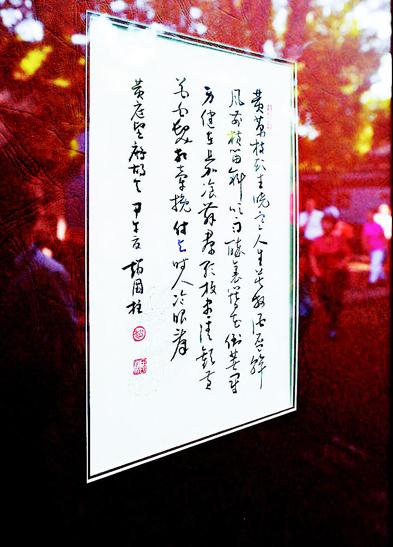 黄菊枝头生晓寒人生莫放酒杯幹
风前横笛斜吹雨醉里簪花倒著冠
身健在且加餐舞群歌板尽清欢黄
花白发相牵挽付与时人冷眼看
黄庭坚鹧鸪天 甲午 国柱